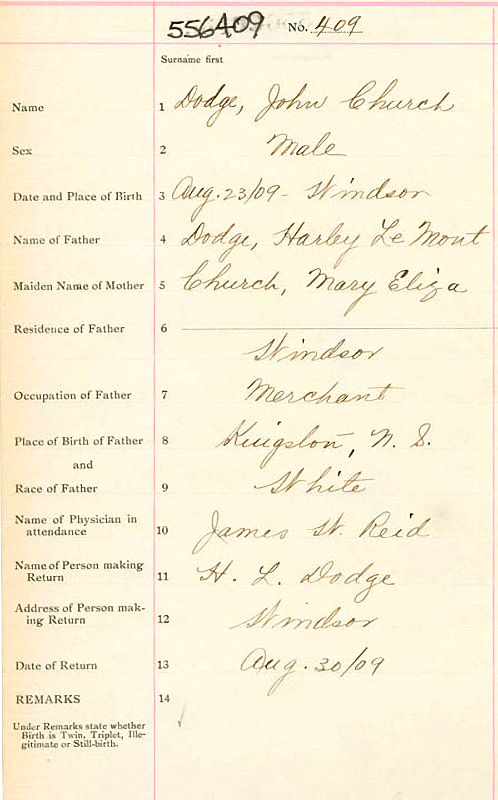 556409 No. 409
Surname first
Name 1 Dodge, John Church
Sex 2 Male
Date and Place of Birth 3 Aug. 23/09 - Windsor
Name of Father 4 Dodge, Harley Le Mont
Maiden Name of Mother 5 Church, Mary Eliza
Residence of Father 6
Windsor
Occupation of Father 7 Merchant
Place of Birth of Father 8 Kingston, N. S.
and
Race of Father 9 White
Name of Physician in
attendance 10 James W. Reid
Name of Person making
Return 11 H. L. Dodge
Address of Person mak-
ing Return 12 Windsor
Date of Return 13 Aug. 30/09
REMARKS 14
Under Remarks state whether
Birth is Twin, Triplet, Ille-
gitimate or Still-birth.